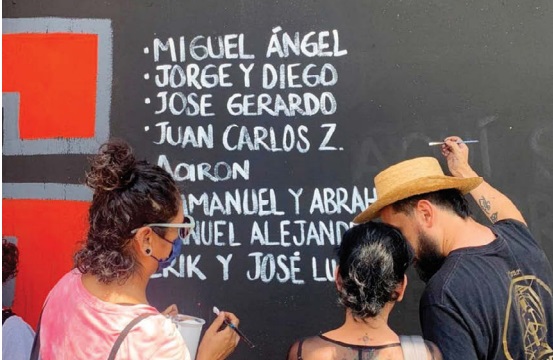 · MIGUEL ÁNGEL
· JORGE Y DIEGO
· JOSE GERARDO
· JUAN CARLOS Z.
Aaron
MMANUEL Y ABRAH
NUEL ALEJAND
RIK Y JOSÉ LU